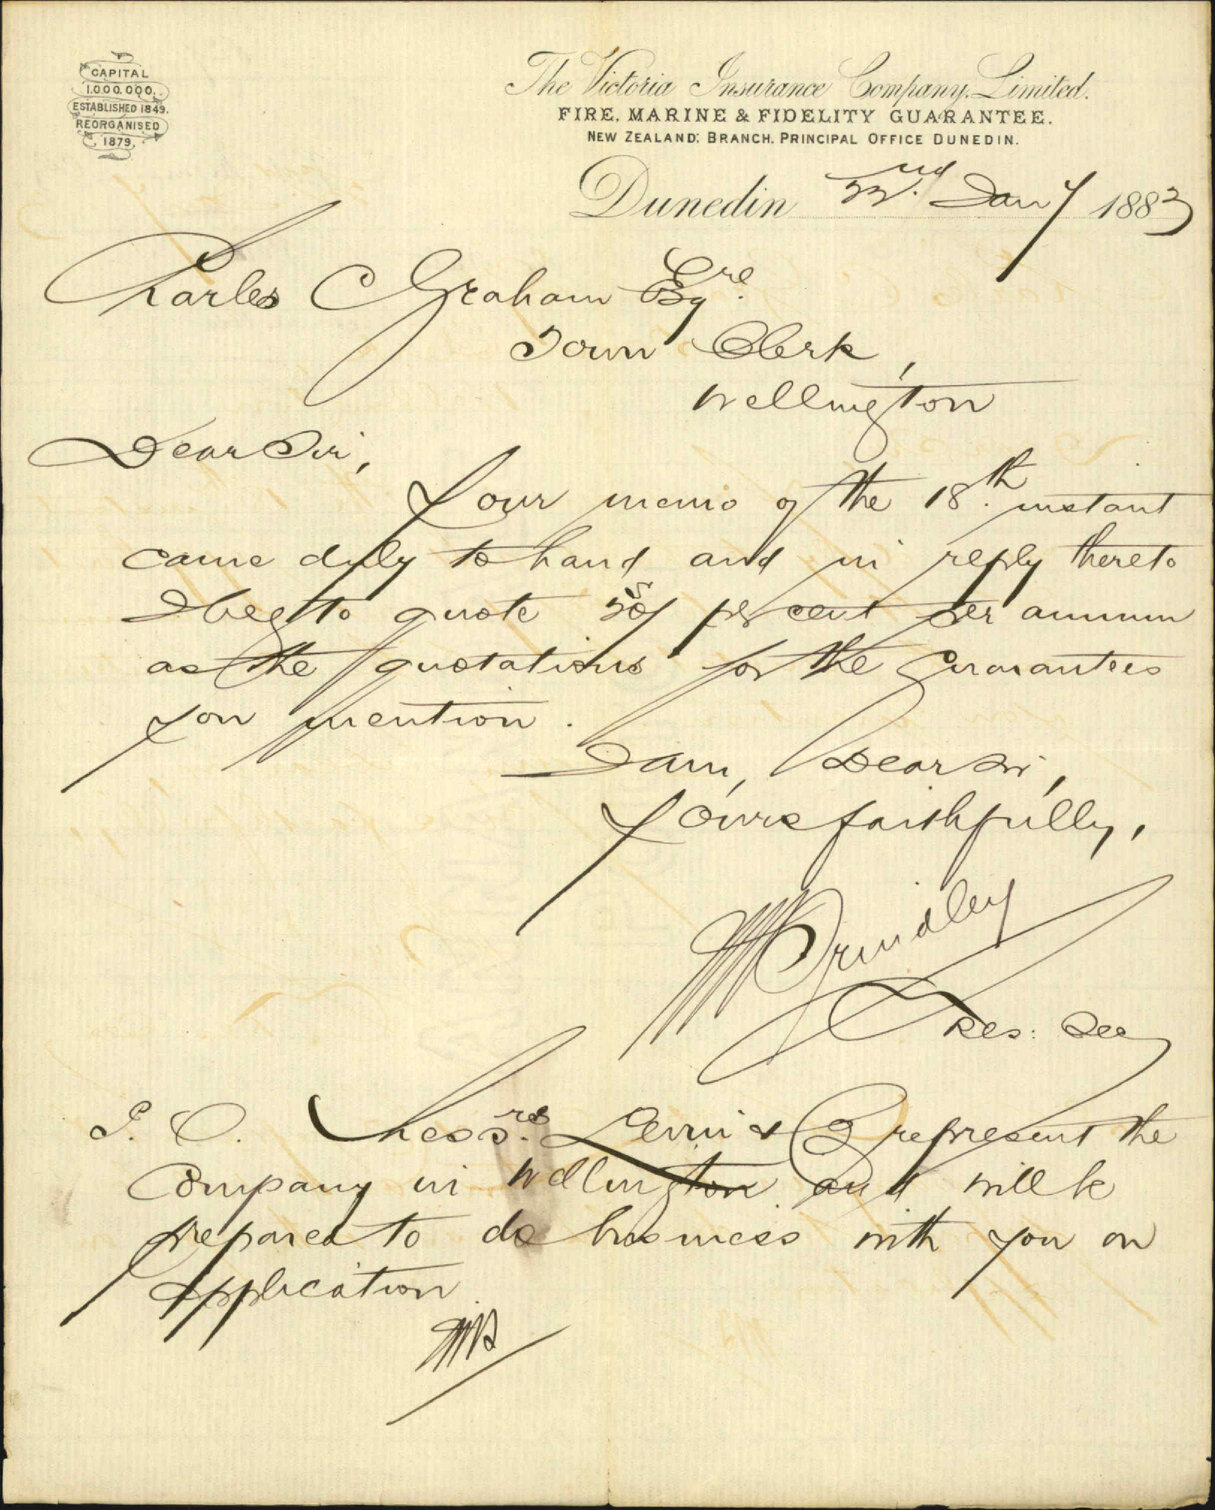 CAPITAL
1.000.000.
ESTABLISHED 1849.
REORGANISED
1879.
The Victoria Insurance Company, Limited.
FIRE, MARINE & FIDELITY GUARANTEE.
NEW ZEALAND: BRANCH. PRINCIPAL OFFICE DUNEDIN.
Dunedin 22nd. Jany 1883
Charles C Graham Esqre.
Town Clerk,
Wellington
Dear Sir,
Your memo of the 18th. instant
came duly to hand and in reply thereto
I beg to quote per cent per annum
as the quotations for the Guarantees
you mention.
I am, Dear Sir,
Yours faithfully,
Grindley
Res: Secy
P. O. Messrs. Levin & Co represent the
Company in Wellington and will be
prepared to do business with you on
application